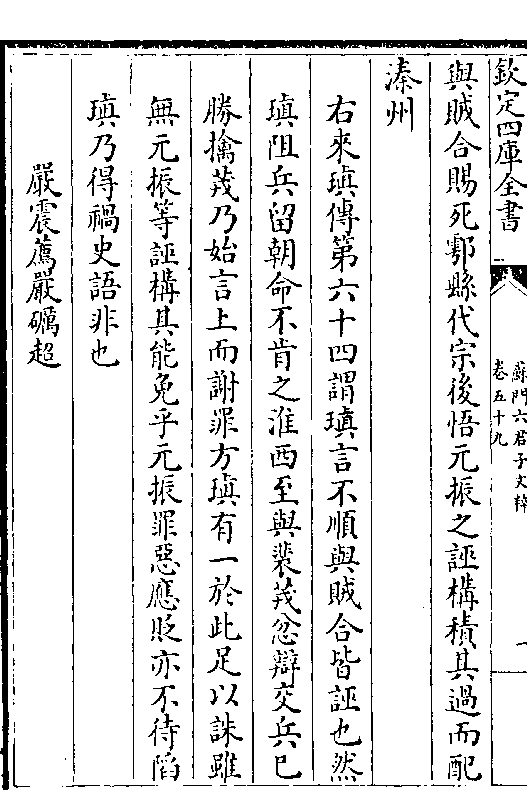 欽定四庫全書
蘇門六君子文粹
卷五十九
與賊合賜死鄠縣代宗後悟元振之誣構積其過而配
溱州
右來瑱傳第六十四謂瑱言不順與賊合皆誣也然
瑱阻兵留朝命不肯之淮西至與裴茙忿辯交兵已
勝擒茙乃始言上而謝罪方瑱有一於此足以誅雖
無元振等誣構其能免乎元振罪惡應貶亦不待陷
瑱乃得禍史語非也
嚴震薦嚴礪超